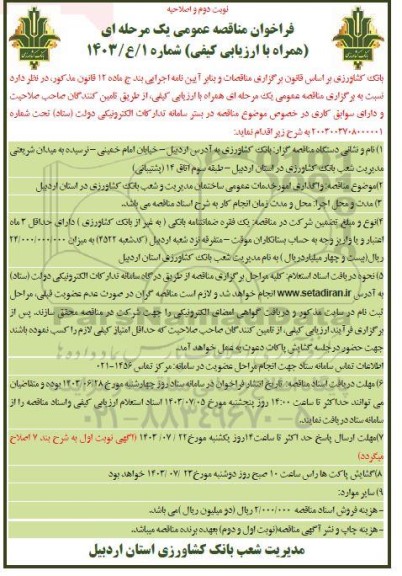 نوبت دوم و اصلاحیه
فراخوان مناقصه عمومی یک مرحله ای
(همراه با ارزیابی کیفی) شماره ۱/ع/۱۴۰۳
بانک کشاورزی بر اساس قانون برگزاری مناقصات و بنابر آیین نامه اجرایی بند ج ماده ۱۲ قانون مذکور، در نظر دارد
نسبت به برگزاری مناقصه عمومی یک مرحله ای همراه با ارزیابی کیفی، از طریق تامین کنندگان صاحب صلاحیت
و دارای سوابق کاری در خصوص موضوع مناقصه در بستر سامانه تدارکات الکترونیکی دولت (ستاد) تحت شماره
۲۰۰۳۰۰۳۷۰۸۰۰۰۰۰۱ به شرح زیر اقدام نماید:
۱)نام و نشانی دستگاه مناقصه گزار: بانک کشاورزی به آدرس اردبیل – خیابان امام خمینی – نرسیده به میدان شریعتی
مدیریت شعب بانک کشاورزی در استان اردبیل – طبقه سوم اتاق ۱۴ (پشتیبانی)
۲)موضوع مناقصه: واگذاری امور خدمات عمومی ساختمان مدیریت و شعب بانک کشاورزی در استان اردبیل
۳)مدت و محل اجرا: محل و مدت زمان انجام کار به شرح اسناد مناقصه می باشد.
۴)نوع و مبلغ تضمین شرکت در مناقصه: یک فقره ضمانتنامه بانکی ( به غیر از بانک کشاورزی ) دارای حداقل ۳ ماه
اعتبار و یا واریز وجه به حساب بستانکاران موقت – متفرقه نزد شعبه اردبیل (کدشعبه ۴۵۲۲) به میزان
ریال(بیست و چهار میلیارد ریال) به نام مدیریت شعب بانک کشاورزی استان اردبیل
۵) نحوه دریافت اسناد استعلام: کلیه مراحل برگزاری مناقصه از طریق درگاه سامانه تدارکات الکترونیکی دولت (ستاد)
به آدرس www.setadiran.ir انجام خواهد شد و لازم است مناقصه گران در صورت عدم عضویت قبلی، مراحل
ثبت نام در سایت مذکور و دریافت گواهی امضای الکترونیکی را جهت شرکت در مناقصه محقق سازند. پس از
برگزاری فرآیند ارزیابی کیفی، از تامین کنندگان صاحب صلاحیت که حداقل امتیاز کیفی لازم را کسب نموده باشند
جهت حضور در جلسه گشایش پاکات دعوت به عمل خواهد آمد.
اطلاعات تماس سامانه ستاد جهت انجام مراحل عضویت در سامانه: مرکز تماس ۱۴۵۶-۰۲۱
۶) مهلت دریافت اسناد مناقصه: تاریخ انتشار فراخوان در سامانه ستاد روز چهارشنبه مورخ ۱۴۰۳/۰۶/۲۸ بوده و متقاضیان
می توانند حداکثر تا ساعت ۱۴:۰۰ روز پنجشنبه مورخ ۱۴۰۳/۰۷/۰۵ اسناد استعلام ارزیابی کیفی واسناد مناقصه را از
سامانه ستاد دریافت نمایند.
۷)مهلت ارسال پاسخ حداکثر تا ساعت ۱۴ روز یکشنبه مورخ ۲۲/ ۰۷/ ۱۴۰۳ (آگهی نوبت اول به شرح بند ۷ اصلاح
میگردد)
۸)گشایش پاکت ها راس ساعت ۱۰ صبح روز دوشنبه مورخ ۲۳/ ۰۷/ ۱۴۰۳ خواهد بود
۹) سایر موارد:
- هزینه فروش اسناد مناقصه ۲/۰۰۰/۰۰۰ ریال (دو میلیون ریال) می باشد.
- هزینه چاپ و نشر آگهی مناقصه(نوبت اول و دوم) بعهده برنده مناقصه میباشد.
مدیریت شعب بانک کشاورزی استان اردبیل
۰۲۱-۸۸۳۴۹۶۷۰-۵